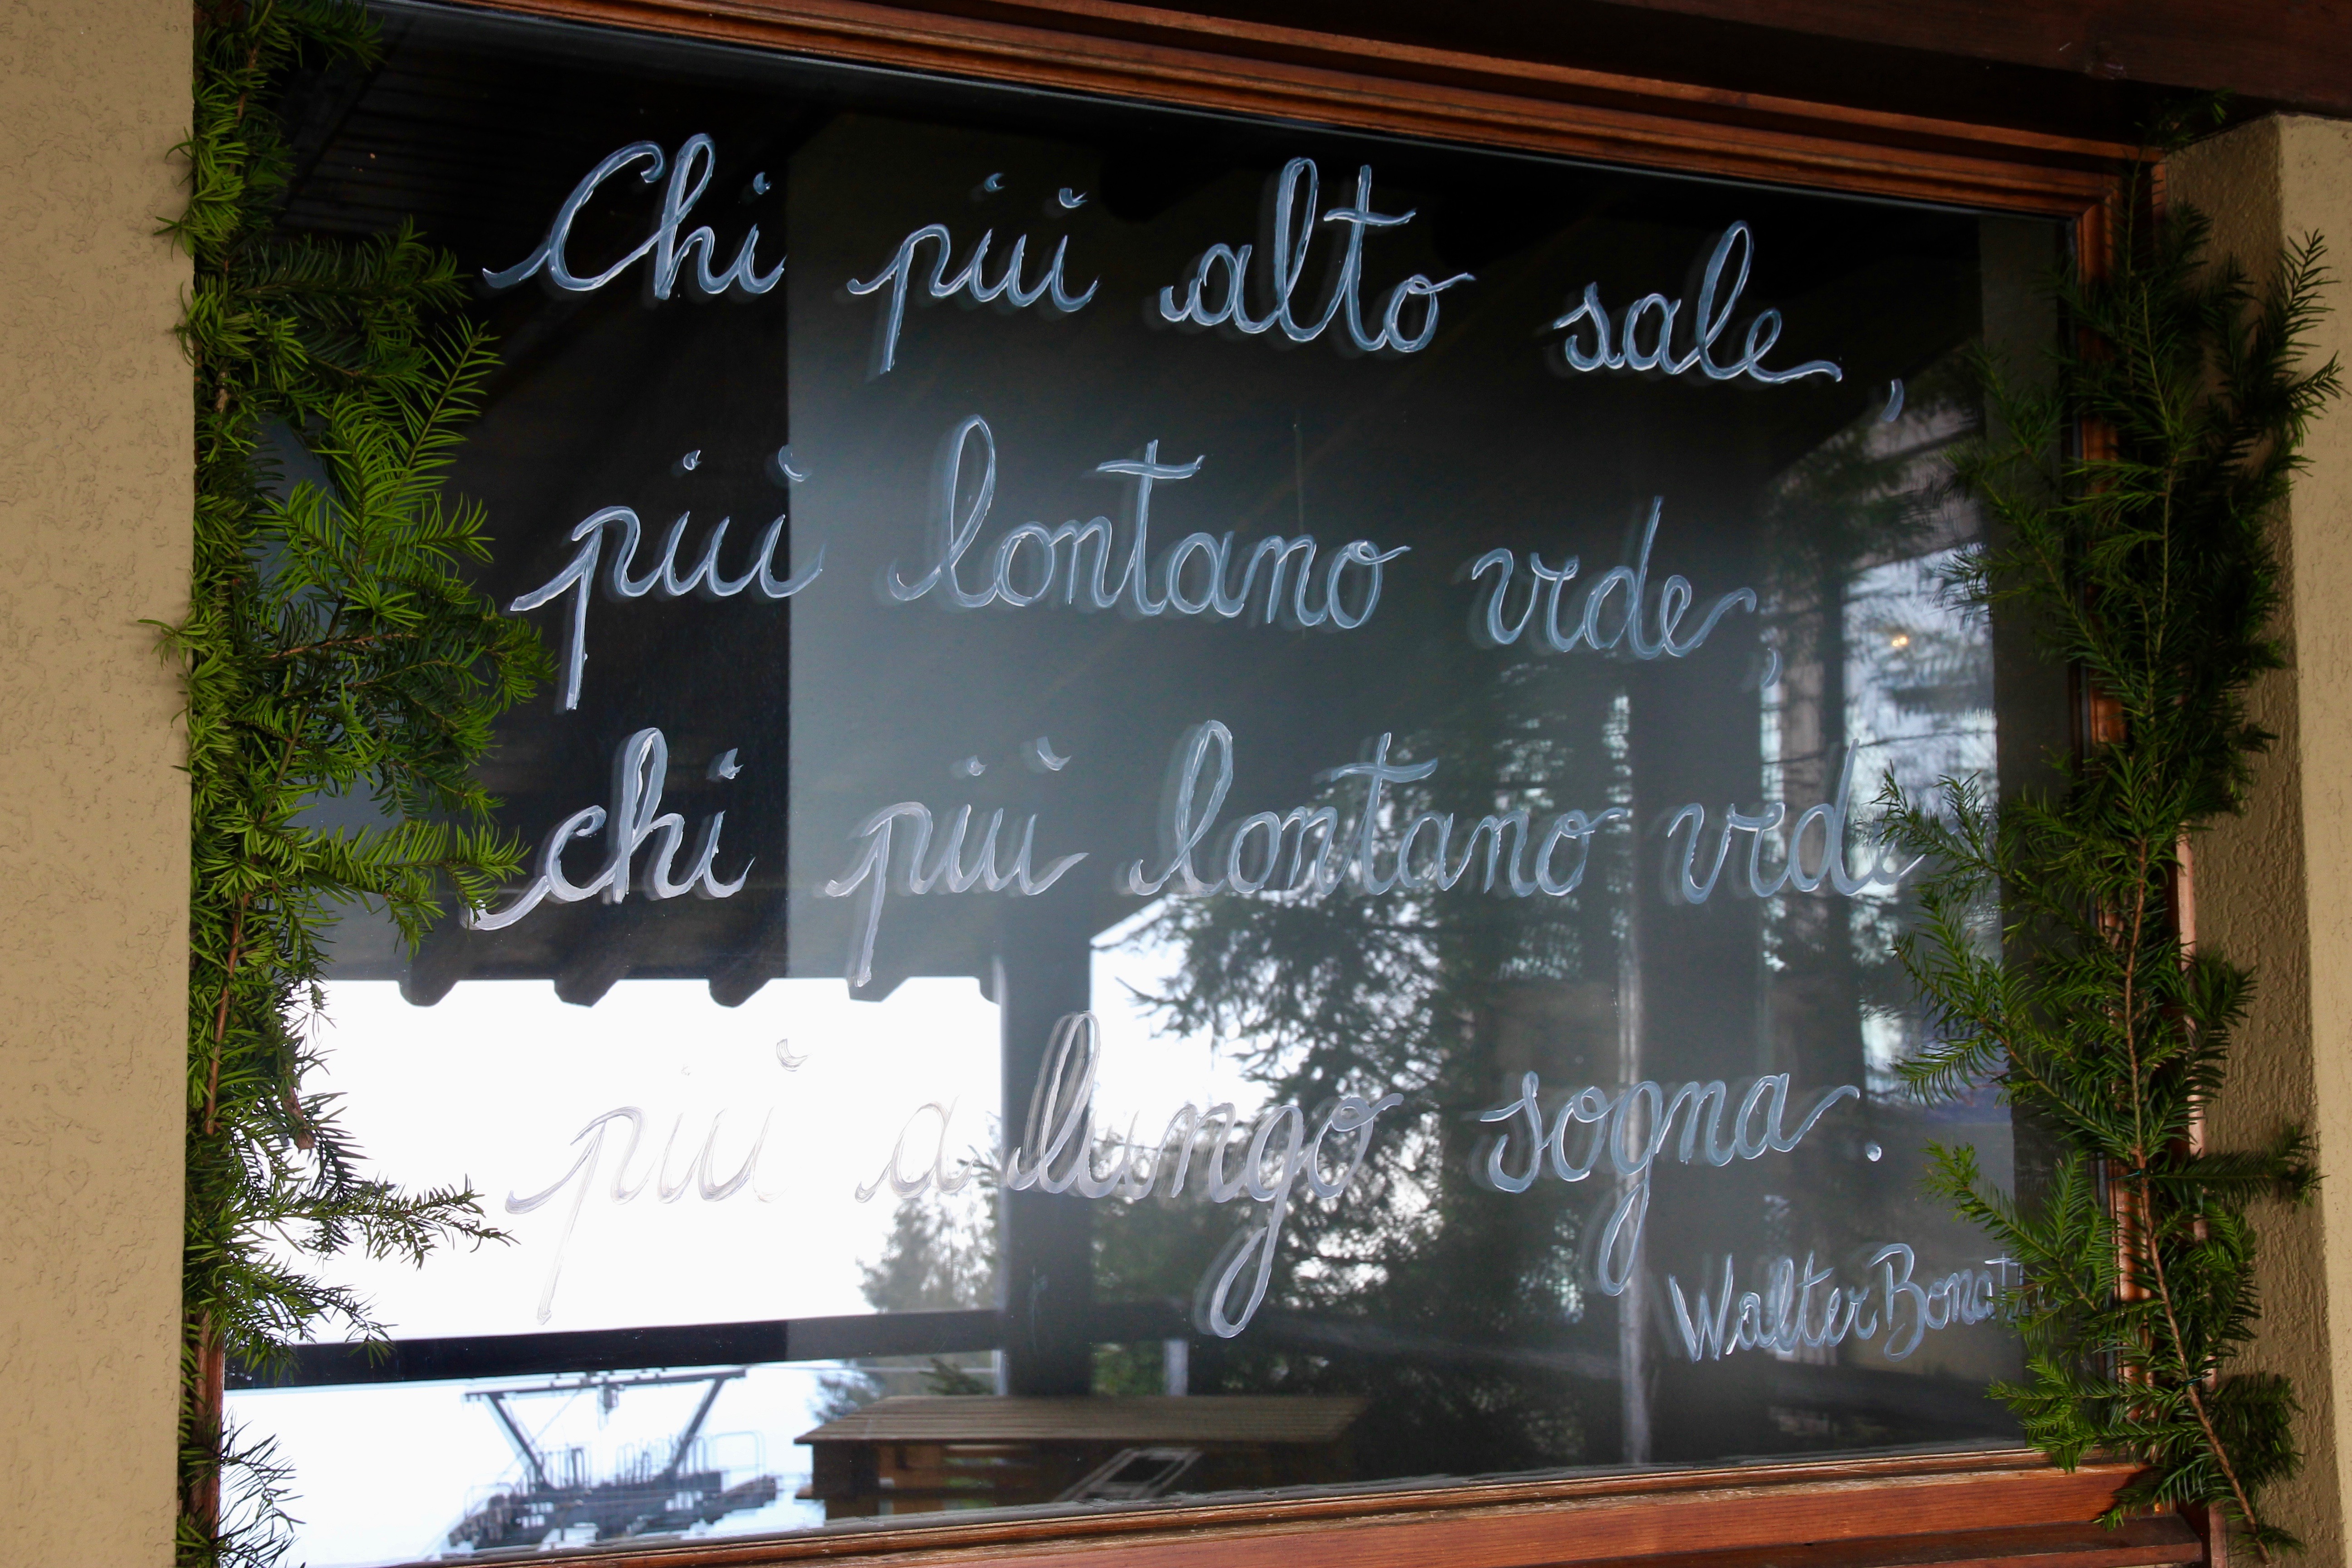 Chi più alto sale,
più lontano vede,
chi più lontano vede
più a lungo sogna.
Walter Bonatti